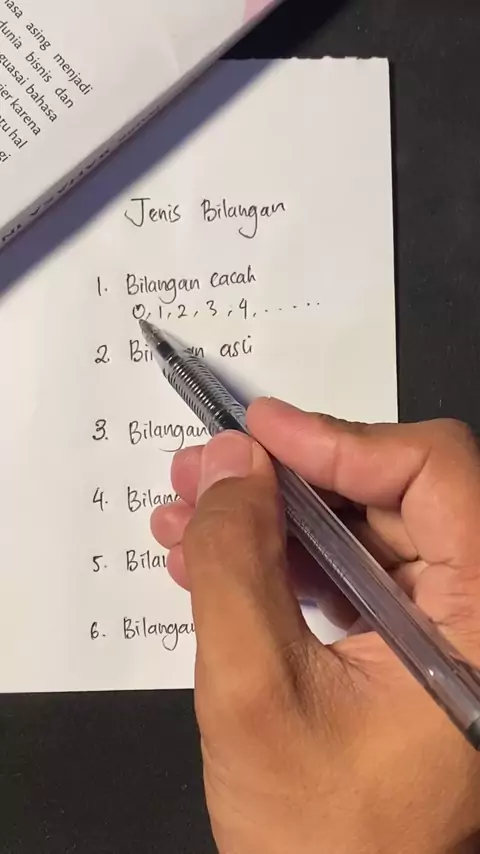 asa asing menjadi
dunia bisnis dan
guasai bahasa
ier karena
tu hal
gi
Jenis Bilangan
1. Bilangan cacah
0, 1, 2, 3, 4, ......
2. asli
3. Bilangan
4.
5.
6. Bilangan